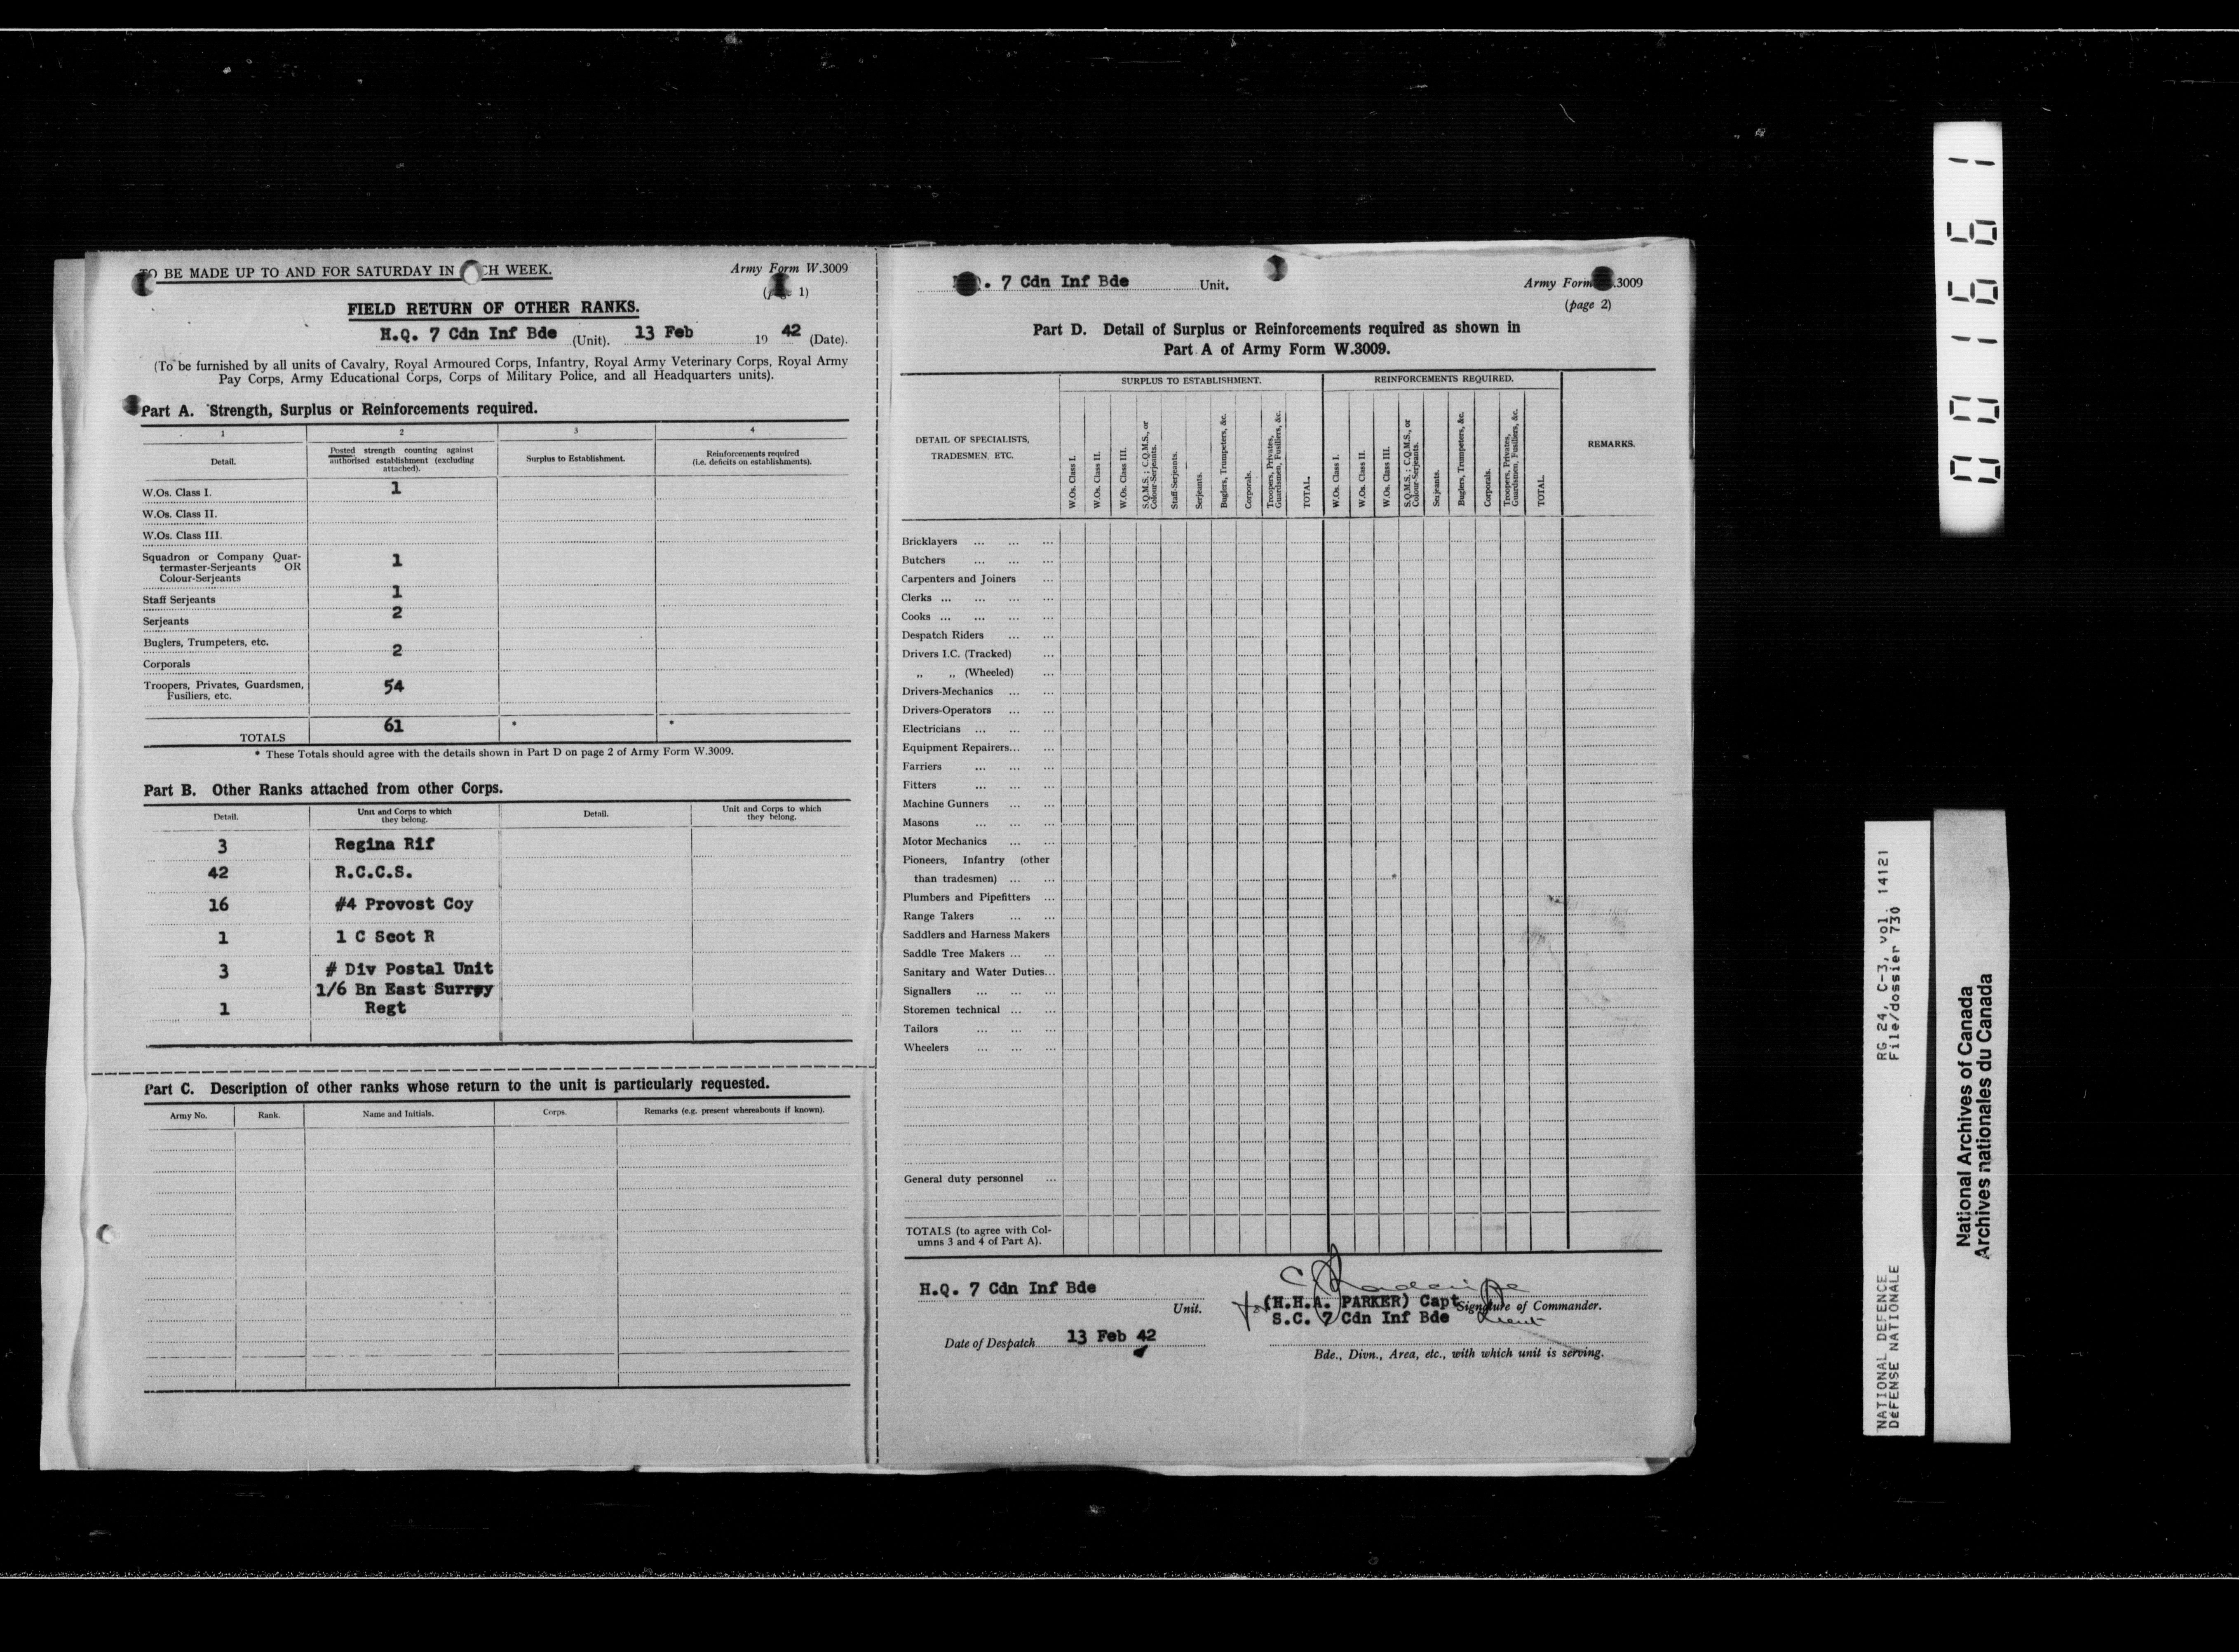 TO BE MADE UP TO AND FOR SATURDAY IN CH WEEK.
Army Form W.3009
(page 1)
FIELD RETURN OF OTHER RANKS.
H.Q. 7 Cdn Inf Bde (Unit). 13 Feb 19 42 (Date).
(To be furnished by all units of Cavalry, Royal Armoured Corps, Infantry, Royal Army Veterinary Corps, Royal Army
Pay Corps, Army Educational Corps, Corps of Military Police, and all Headquarters units).
Part A. Strength, Surplus or Reinforcements required.
1 2 3 4
Detail.
Posted strength counting against
authorised establishment (excluding
attached).
Surplus to Establishment.
Reinforcements required
(i.e. deficits on establishments).
W.Os. Class I. 1
W.Os. Class II.
W.Os. Class III.
Squadron or Company Quar-
termaster-Serjeants OR
Colour-Serjeants 1
Staff Serjeants 1
Serjeants 2
Buglers, Trumpeters, etc.
Corporals 2
Troopers, Privates, Guardsmen,
Fusiliers, etc. 54
TOTALS 61 * *
* These Totals should agree with the details shown in Part D on page 2 of Army Form W.3009.
Part B. Other Ranks attached from other Corps.
Detail.
Unit and Corps to which
they belong.
Detail.
Unit and Corps to which
they belong.
3 Regina Rif
42 R.C.C.S.
16 #4 Provost Coy
1 1 C Scot R
3 # Div Postal Unit
1/6 Bn East Surrey
1 Regt
Part C. Description of other ranks whose return to the unit is particularly requested.
Army No. Rank. Name and Initials. Corps. Remarks (e.g. present whereabouts if known).
. 7 Cdn Inf Bde Unit.
Army Form .3009
(page 2)
Part D. Detail of Surplus or Reinforcements required as shown in
Part A of Army Form W.3009.
DETAIL OF SPECIALISTS,
TRADESMEN, ETC.
SURPLUS TO ESTABLISHMENT.
REINFORCEMENTS REQUIRED.
REMARKS.
W.Os. Class I.
W.Os. Class II.
W.Os. Class III.
S.Q.M.S.; C.Q.M.S., or
Colour-Serjeants.
Staff-Serjeants.
Serjeants.
Buglers, Trumpeters, &c.
Corporals.
Troopers, Privates,
Guardsmen, Fusiliers, &c.
TOTAL.
W.Os. Class I.
W.Os. Class II.
W.Os. Class III.
S.Q.M.S.; C.Q.M.S., or
Colour-Serjeants.
Serjeants.
Buglers, Trumpeters, &c.
Corporals.
Troopers, Privates,
Guardsmen, Fusiliers, &c.
TOTAL.
Bricklayers ... ... ...
Butchers ... ... ...
Carpenters and Joiners ...
Clerks ... ... ... ...
Cooks ... ... ... ...
Despatch Riders ... ...
Drivers I.C. (Tracked) ...
„ „ (Wheeled) ...
Drivers-Mechanics ... ...
Drivers-Operators ... ...
Electricians ... ... ...
Equipment Repairers... ...
Farriers ... ... ...
Fitters ... ... ...
Machine Gunners ... ...
Masons ... ... ...
Motor Mechanics ... ...
Pioneers, Infantry (other
than tradesmen) ... ...
Plumbers and Pipefitters ...
Range Takers ... ...
Saddlers and Harness Makers
Saddle Tree Makers ... ...
Sanitary and Water Duties...
Signallers ... ... ...
Storemen technical ... ...
Tailors ... ... ...
Wheelers ... ... ...
General duty personnel ...
TOTALS (to agree with Col-
umns 3 and 4 of Part A).
H.Q. 7 Cdn Inf Bde
Unit.
for (H.H.A. PARKER) Capt Signature of Commander.
S.C. 7 Cdn Inf Bde Lieut
Date of Despatch 13 Feb 42
Bde., Divn., Area, etc., with which unit is serving.
0001661
NATIONAL DEFENCE RG 24, C-3, vol. 14121
DÉFENSE NATIONALE File/dossier 730
National Archives of Canada
Archives nationales du Canada